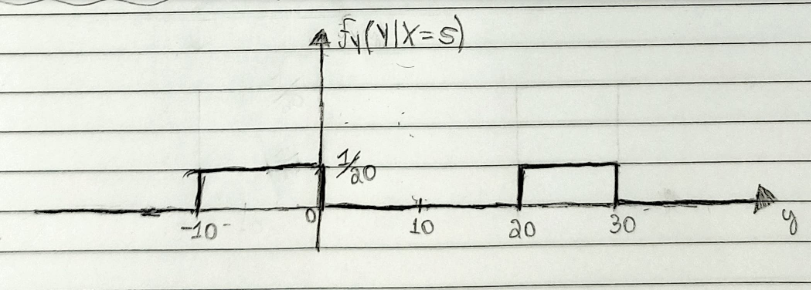 fy(y|X=5)
1/20
-10 0 10 20 30 y